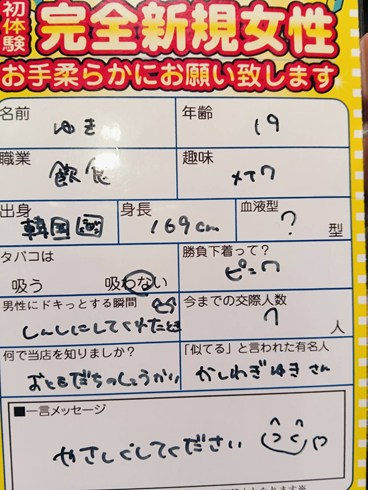 初体験
完全新規女性
お手柔らかにお願い致します
名前 ゆき
年齢 19
職業 飲食
趣味 メイク
出身 韓国
身長 169cm
血液型 ? 型
タバコは 吸う 吸わない
勝負下着って? ピンク
男性にドキっとする瞬間 しんしにしてくれたとき
今までの交際人数 7 人
何で当店を知りましたか? おともだちのしょうかい
「似てる」と言われた有名人 かしわぎゆきさん
■一言メッセージ
やさしくしてください